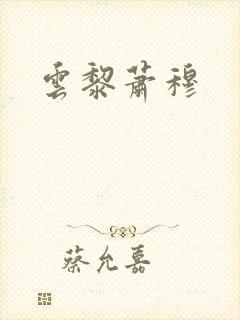 雲黎蕭穆
蔡允嘉